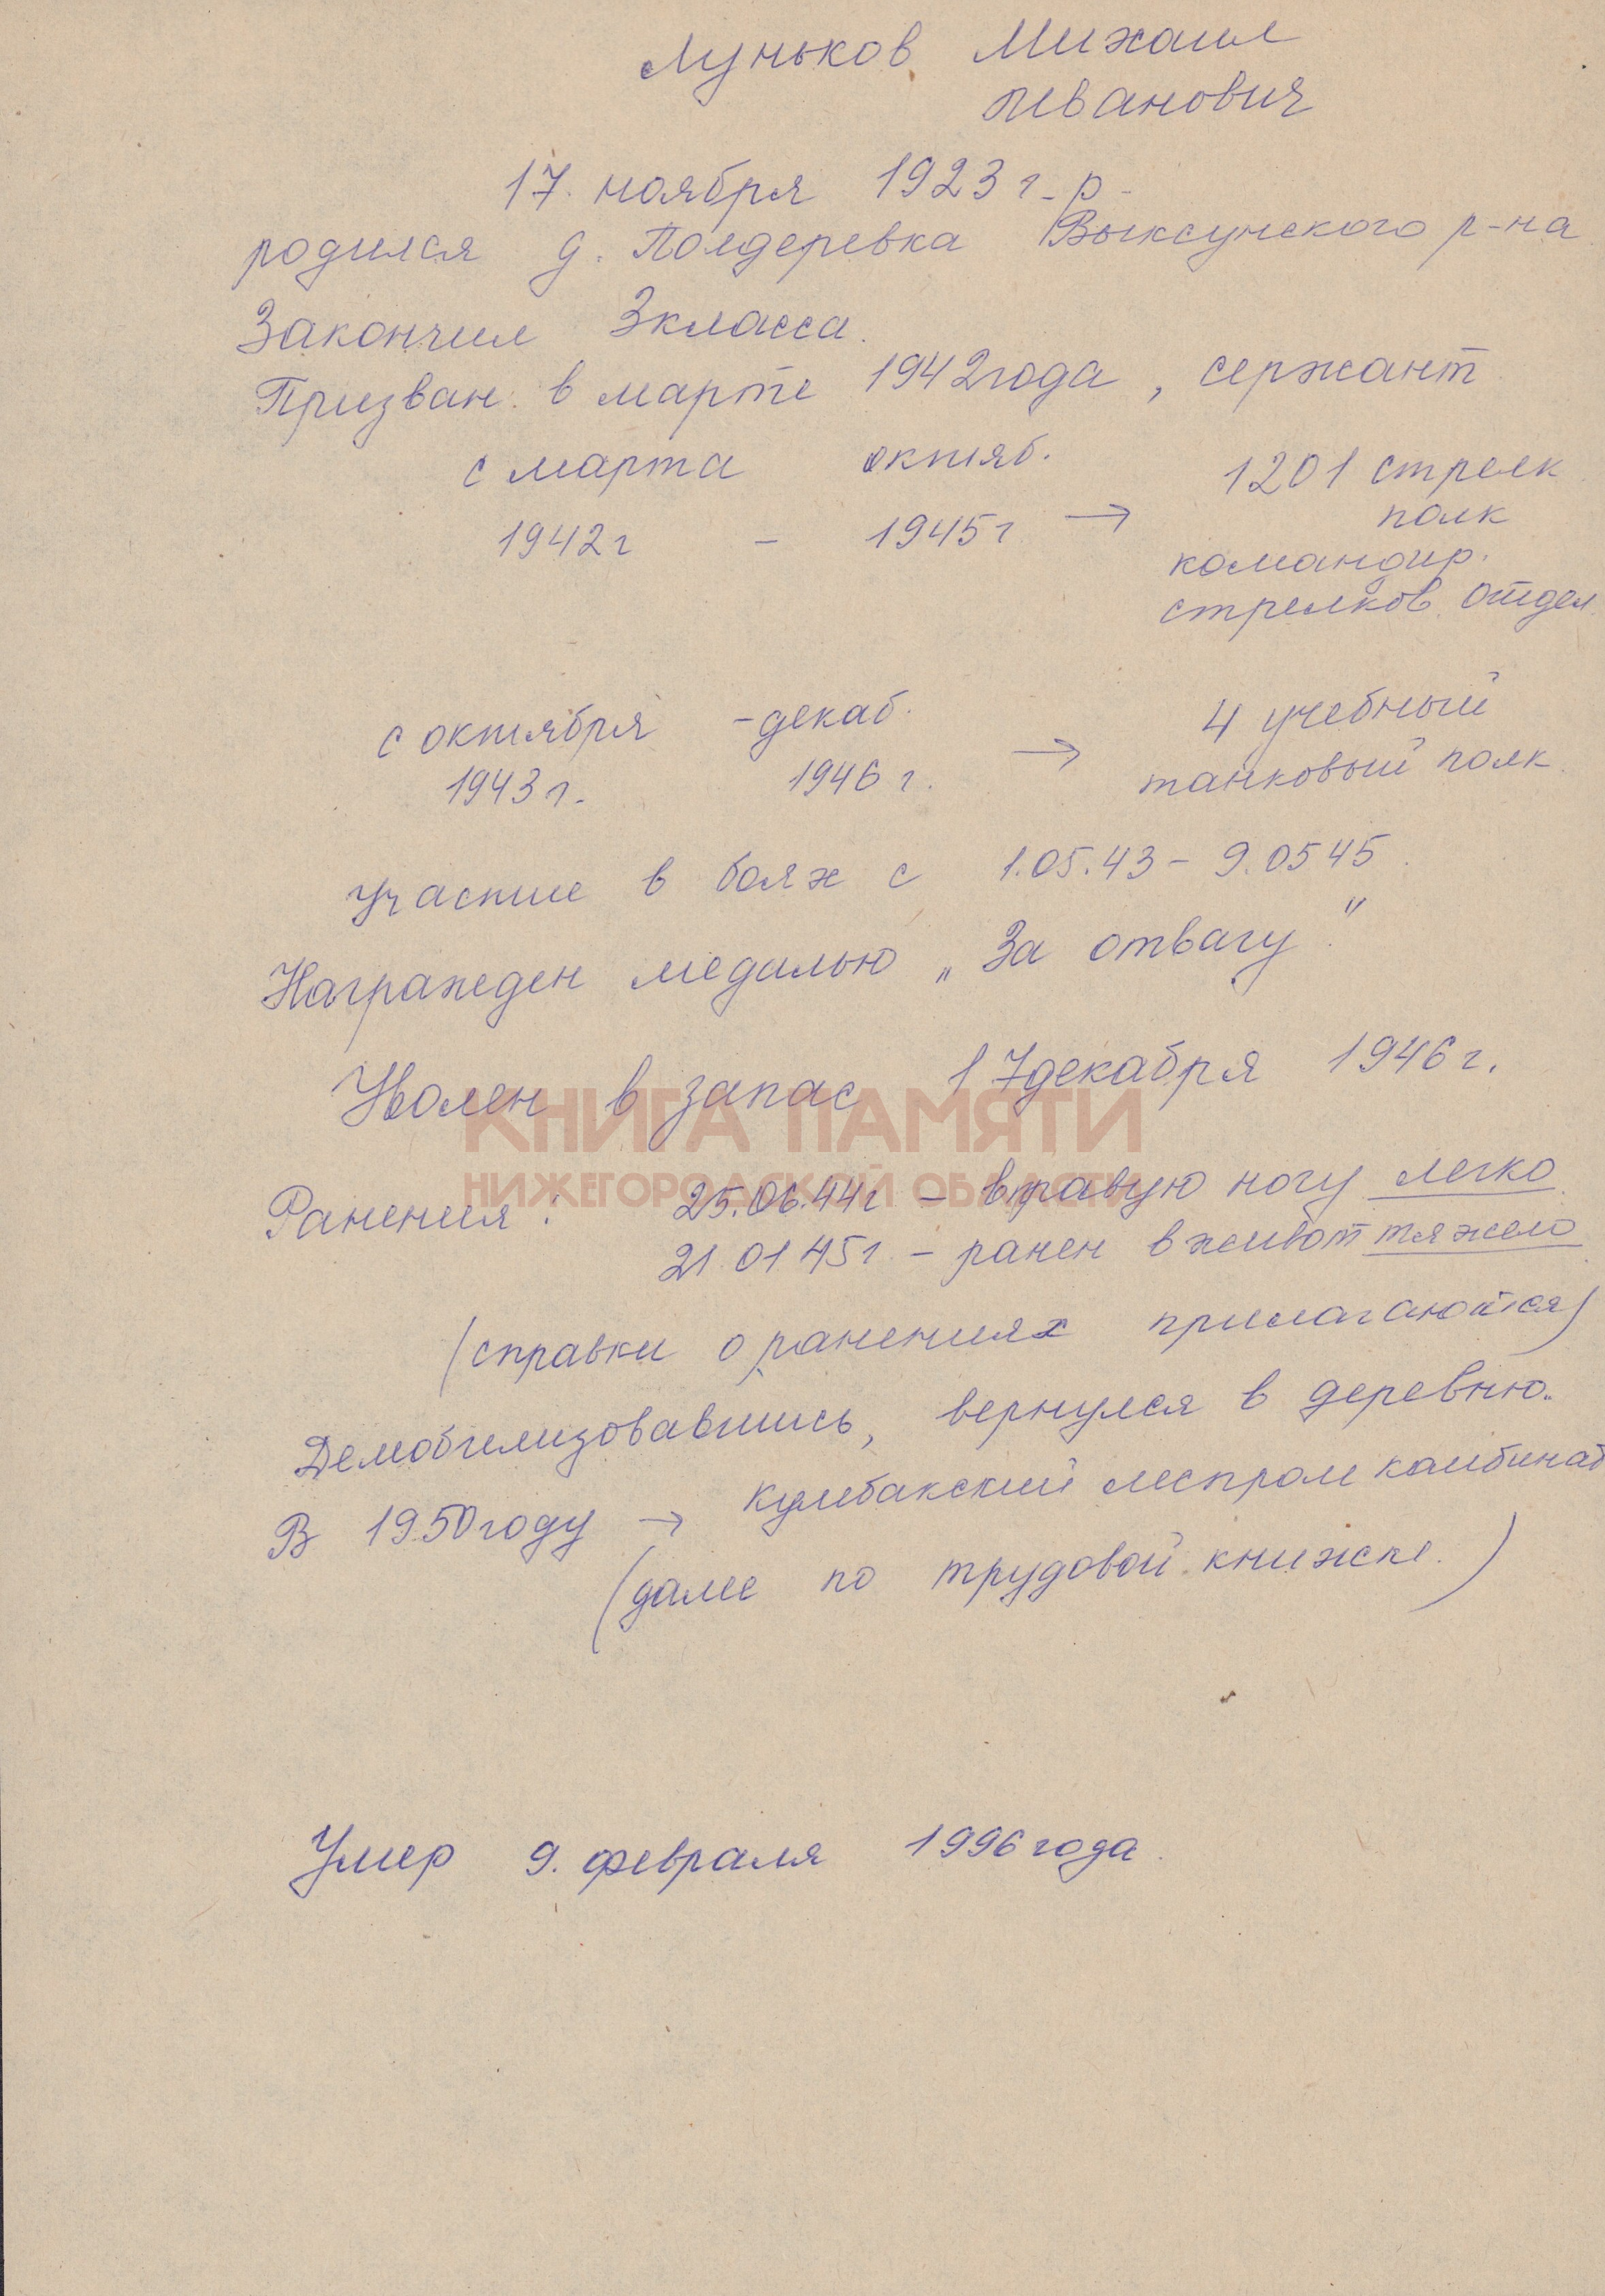 Луньков Михаил
Иванович
17. ноября 1923 г. р.
родился д. Полдеревка Выксунского р-на
Закончил 3 класса.
Призван в марте 1942 года, сержант
с марта октяб. 1201 стрелк
1942 г - 1945 г → полк
командир.
стрелков. отдел
с октября - декаб. 4 учебный
1943 г. 1946 г. → танковый полк.
Участие в боях с 1.05.43 - 9.05 45.
Награжден медалью „За отвагу."
Уволен в запас 17 декабря 1946 г.
КНИГА ПАМЯТИ
НИЖЕГОРОДСКОЙ ОБЛАСТИ
Ранения: 25.06.44 г - в правую ногу легко
21.01 45 г. - ранен в живот тяжело
(справки о ранениях прилагаются)
Демобилизовавшись, вернулся в деревню.
В 1950 году → Кулебакский леспром комбинат
(далее по трудовой книжке.)
Умер 9. февраля 1996 года.